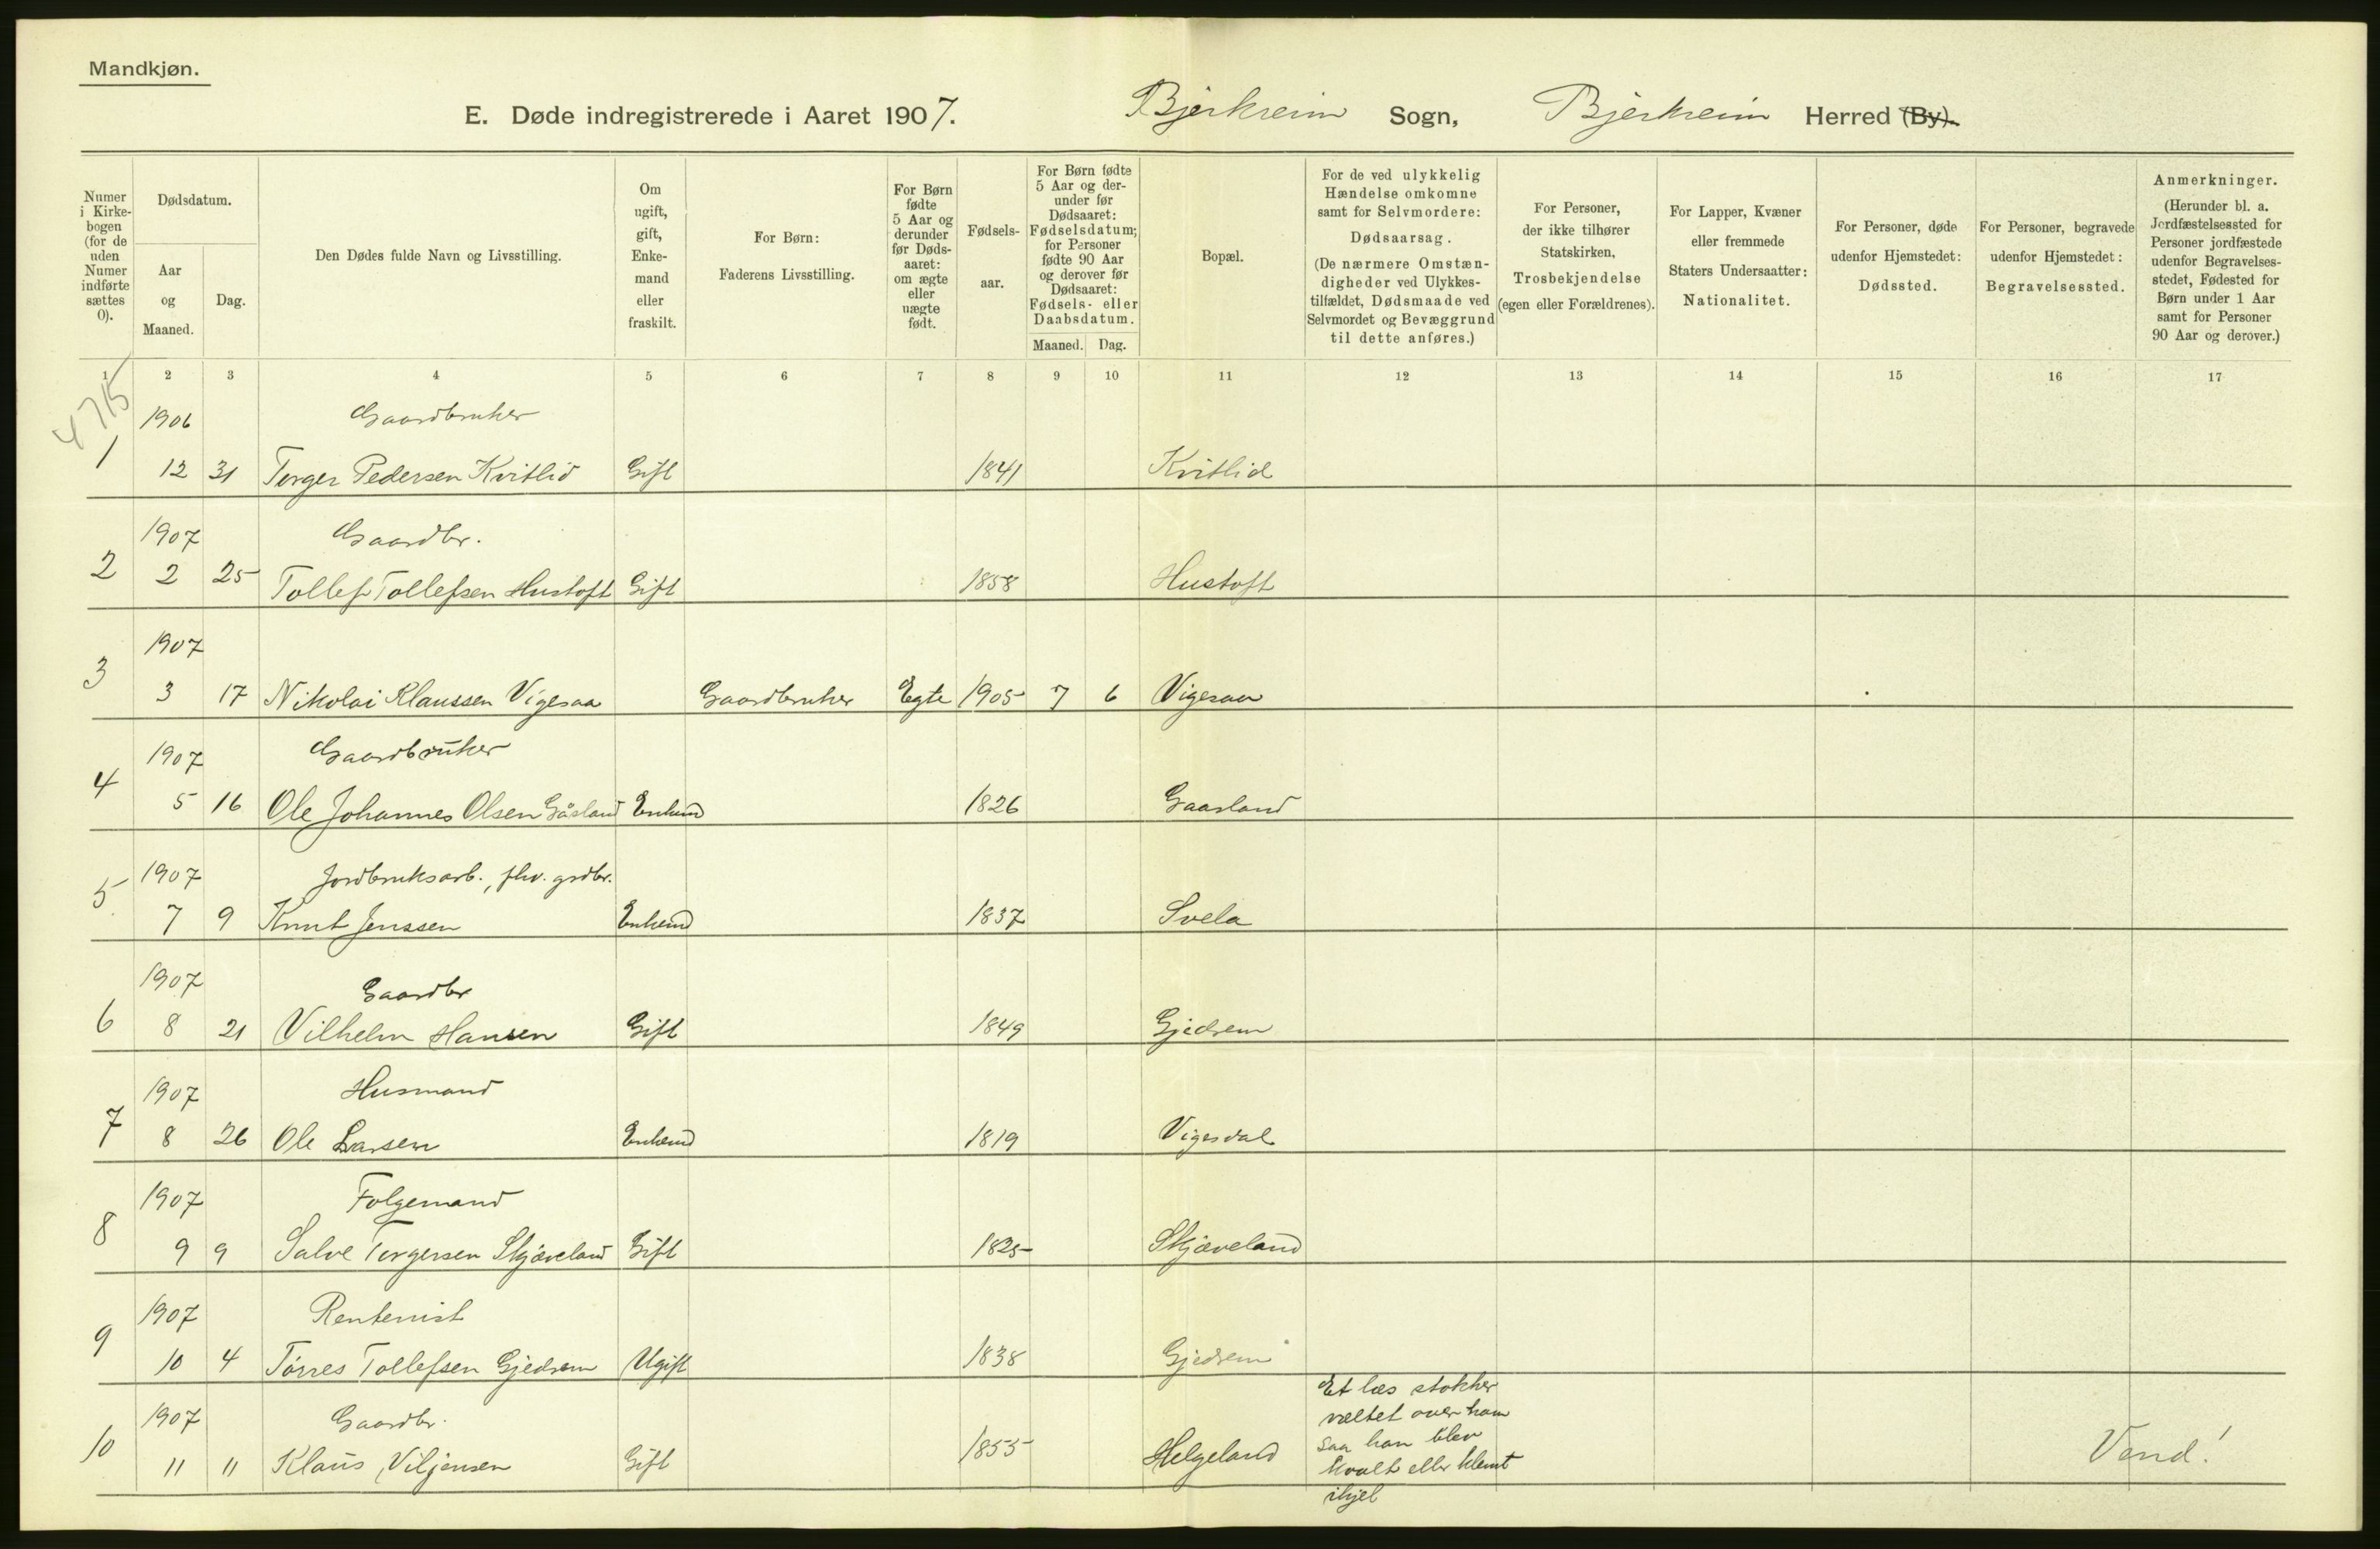 Mandkjøn.
E. Døde indregistrerede i Aaret 1907. Bjerkreim Sogn, Bjerkreim Herred (By).
Numer i Kirkebogen (for de uden Numer indførte sættes 0).
Dødsdatum.
Aar og Maaned.
Dag.
Den Dødes fulde Navn og Livsstilling.
Om ugift, gift, Enkemand eller fraskilt.
For Børn: Faderens Livsstilling.
For Børn fødte 5 Aar og derunder før Dødsaaret: om ægte eller uægte født.
Fødselsaar.
For Børn fødte 5 Aar og derunder før Dødsaaret: Fødselsdatum; for Personer fødte 90 Aar og derover før Dødsaaret: Fødsels- eller Daabsdatum.
Maaned. Dag.
Bopæl.
For de ved ulykkelig Hændelse omkomne samt for Selvmordere: Dødsaarsag. (De nærmere Omstændigheder ved Ulykkestilfældet, Dødsmaade ved Selvmordet og Bevæggrund til dette anføres.)
For Personer, der ikke tilhører Statskirken, Trosbekjendelse (egen eller Forældrenes).
For Lapper, Kvæner eller fremmede Staters Undersaatter: Nationalitet.
For Personer, døde udenfor Hjemstedet: Dødssted.
For Personer, begravede udenfor Hjemstedet: Begravelsessted.
Anmerkninger. (Herunder bl. a. Jordfæstelsessted for Personer jordfæstede udenfor Begravelsesstedet, Fødested for Børn under 1 Aar samt for Personer 90 Aar og derover.)
1 2 3 4 5 6 7 8 9 10 11 12 13 14 15 16 17
4715
1906 Gaardbruker
1 12 31 Torger Pedersen Kvitlid Gift 1841 Kvitlid
1907 Gaardbr.
2 2 25 Tollef Tollefsen Hustoft Gift 1858 Hustoft
1907
3 3 17 Nikolai Klaussen Vigesaa Gaardbruker Egte 1905 7 6 Vigesaa
1907 Gaardbruker
4 5 16 Ole Johannes Olsen Gåsland Enkemd 1826 Gaasland
1907 Jordbruksarb., fhv. grdbr.
5 7 9 Knut Jenssen Enkemd 1837 Svela
1907 Gaardbr
6 8 21 Vilhelm Hansen Gift 1849 Gjedrem
1907 Husmand
7 8 26 Ole Larsen Enkemd 1819 Vigesdal
1907 Folgemand
8 9 9 Salve Torgersen Skjæveland Gift 1825 Skjæveland
1907 Rentenist
9 10 4 Tørres Tollefsen Gjedrem Ugift 1838 Gjedrem
1907 Gaardbr.
10 11 11 Klaus Viljensen Gift 1855 Helgeland
Et læs stokker
væltet over ham
saa han blev
kvalt eller klemt
ihjel
Vend!